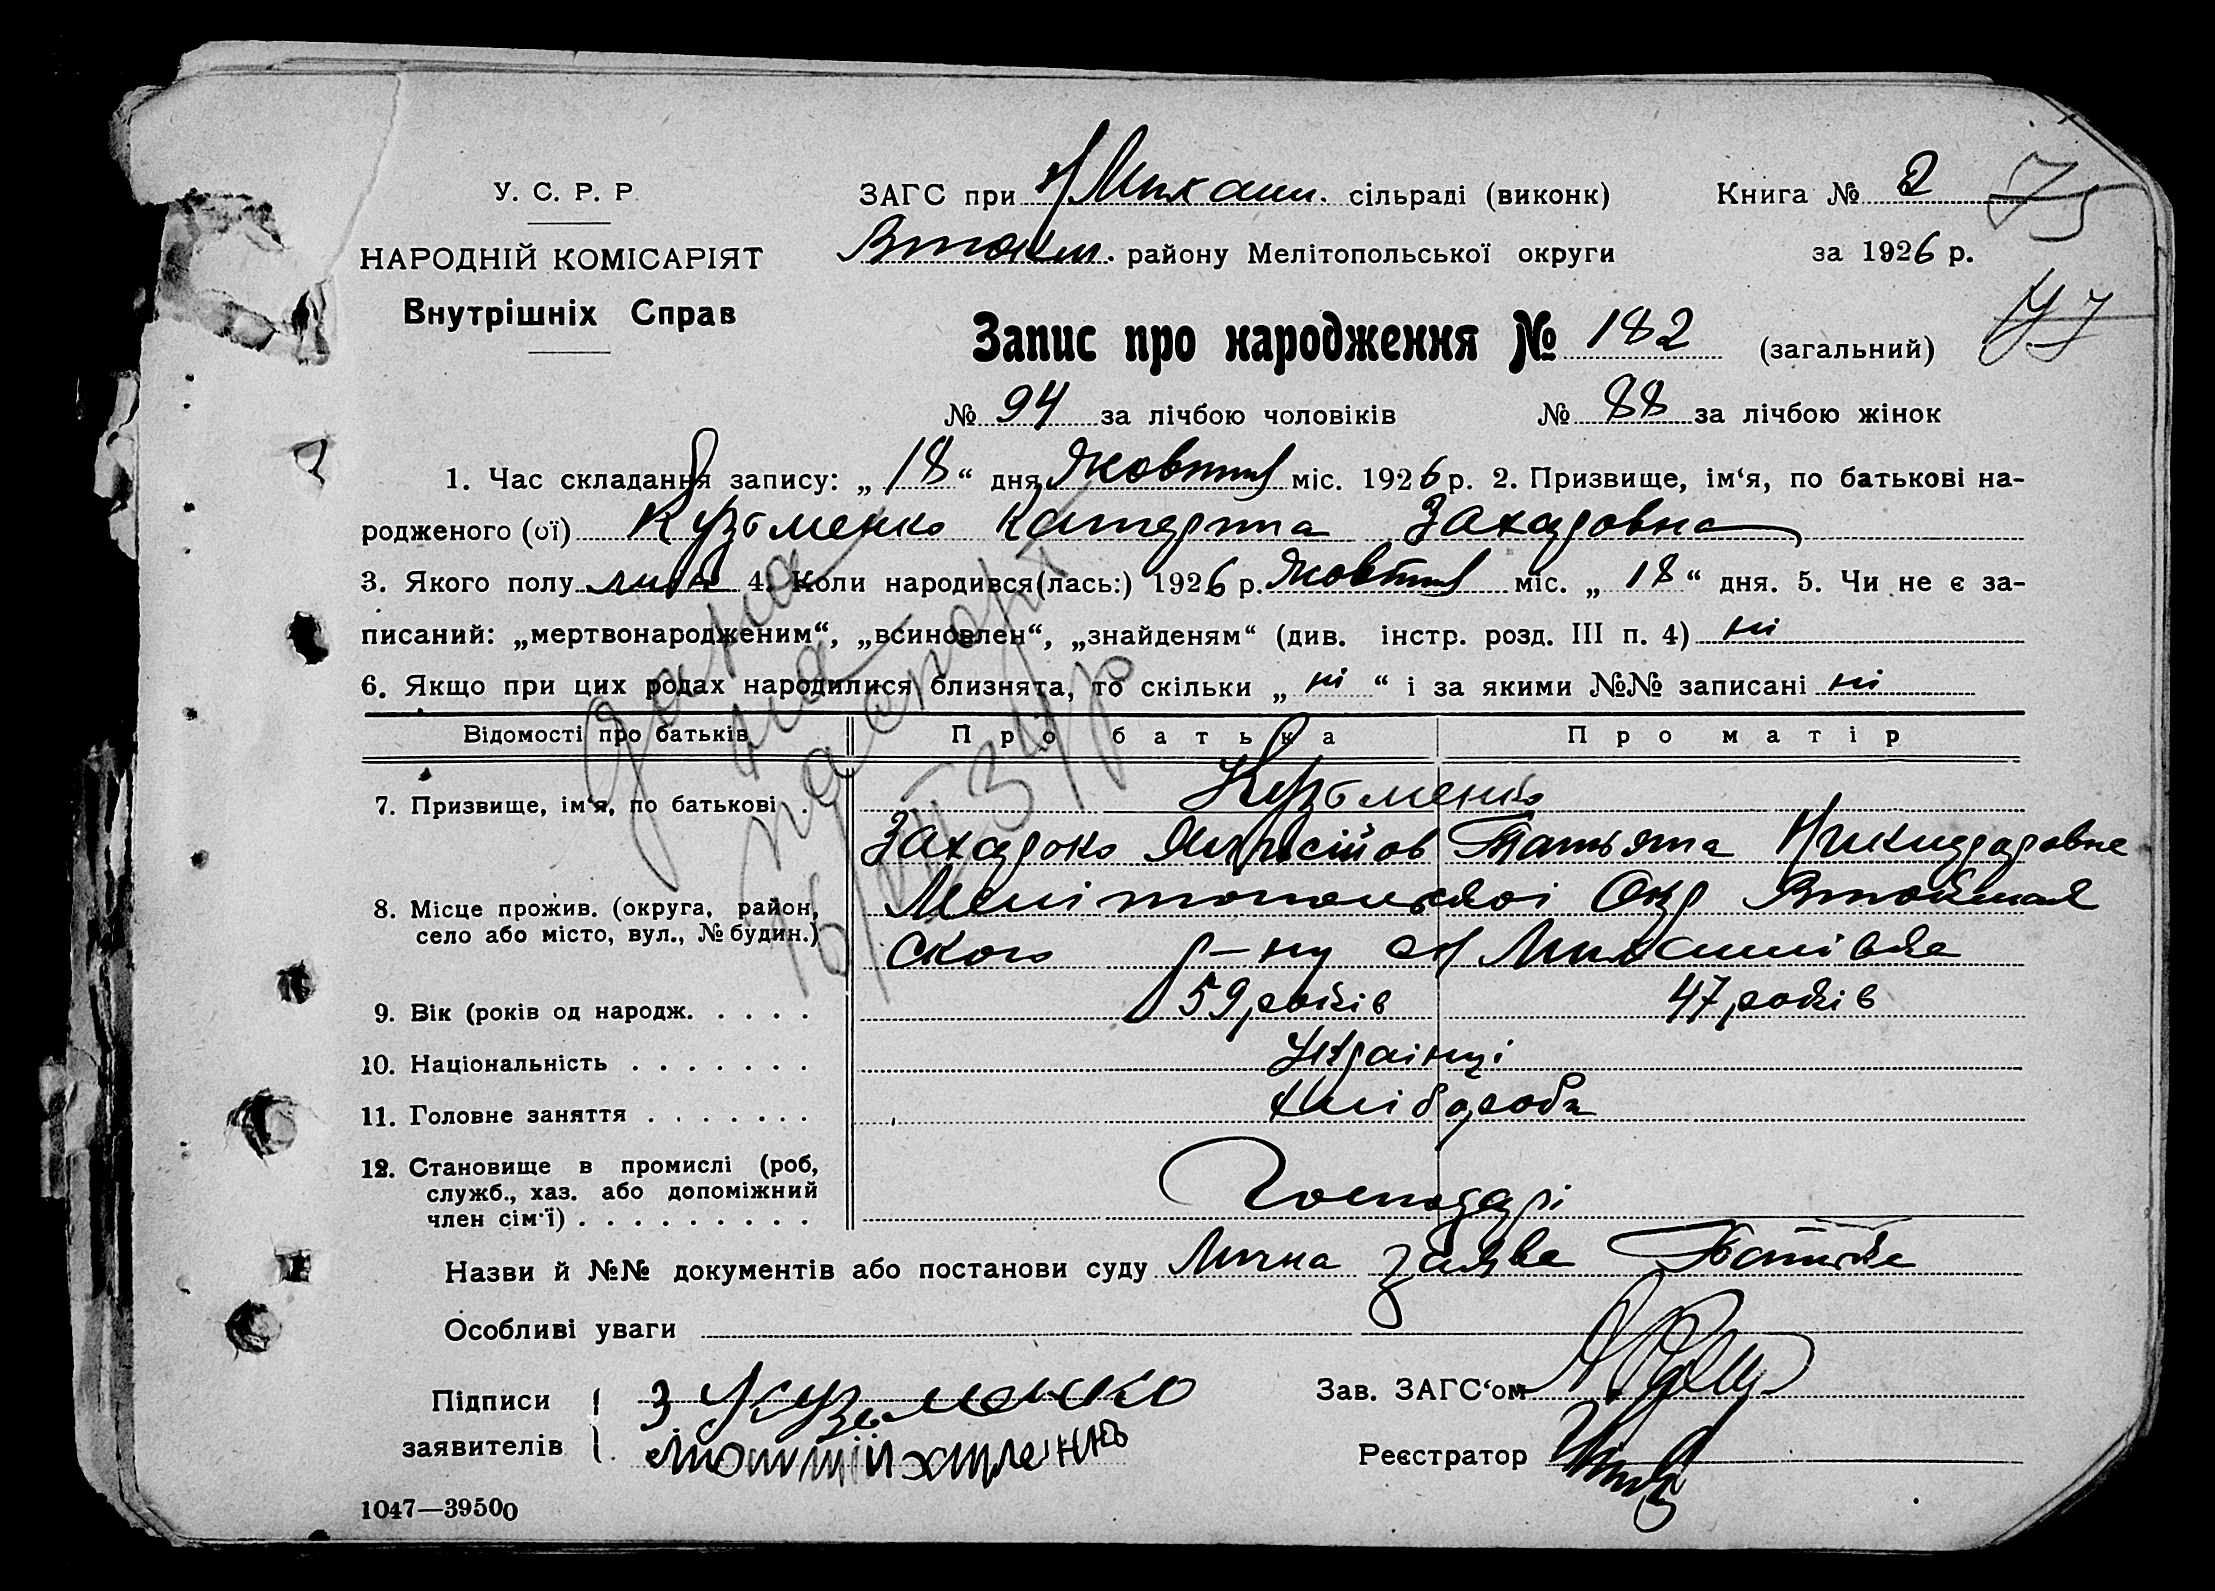 У. С. Р. Р.
НАРОДНІЙ КОМІСАРІЯТ
Внутрішніх Справ
ЗАГС при Н Михайл. сільраді (виконк)
району Мелітопольської округи
Книга № 2
75
за 1926 р.
77
Запис про народження № 182 (загальний)
№ 94 за лічбою чоловіків № 88 за лічбою жінок
1. Час складання запису: „ 18 “ дня Жовтня міс. 1926 р. 2. Призвище, ім‘я, по батькові на-
родженого (ої) Кузьменко Катерина Захаровна
3. Якого полу 4. Коли народився(лась:) 1926 р. Жовтня міс. „ 18 “ дня. 5. Чи не є за-
писаний: „мертвонародженим“, „всиновлен“, „знайденям“ (див. інстр. розд. III п. 4) ні
6. Якщо при цих родах народилися близнята, то скільки „ ні “ і за якими №№ записані ні
Відомості про батьків Про батька Про матір
7. Призвище, ім‘я, по батькові . Кузьменко
Татьяна
8. Місце прожив. (округа, район, Мелітопольскоі Окр
село або місто, вул., № будин.) ского р-ну Михайлівка
9. Вік (років од народж. . . . . 59 років 47 років
10. Національність . . . . . . . Украінці
11. Головне заняття . . . . . . . хлібороби
12. Становище в промислі (роб,
служб., хаз. або допоміжний
член сім‘ї) . . . . . . . . . Господарі
Назви й №№ документів або постанови суду Лична заява Батька
Особливі уваги
Підписи З Кузьменко
заявителів
Зав. ЗАГС‘ом
Реєстратор
1047—39500
дана
на
паспорт